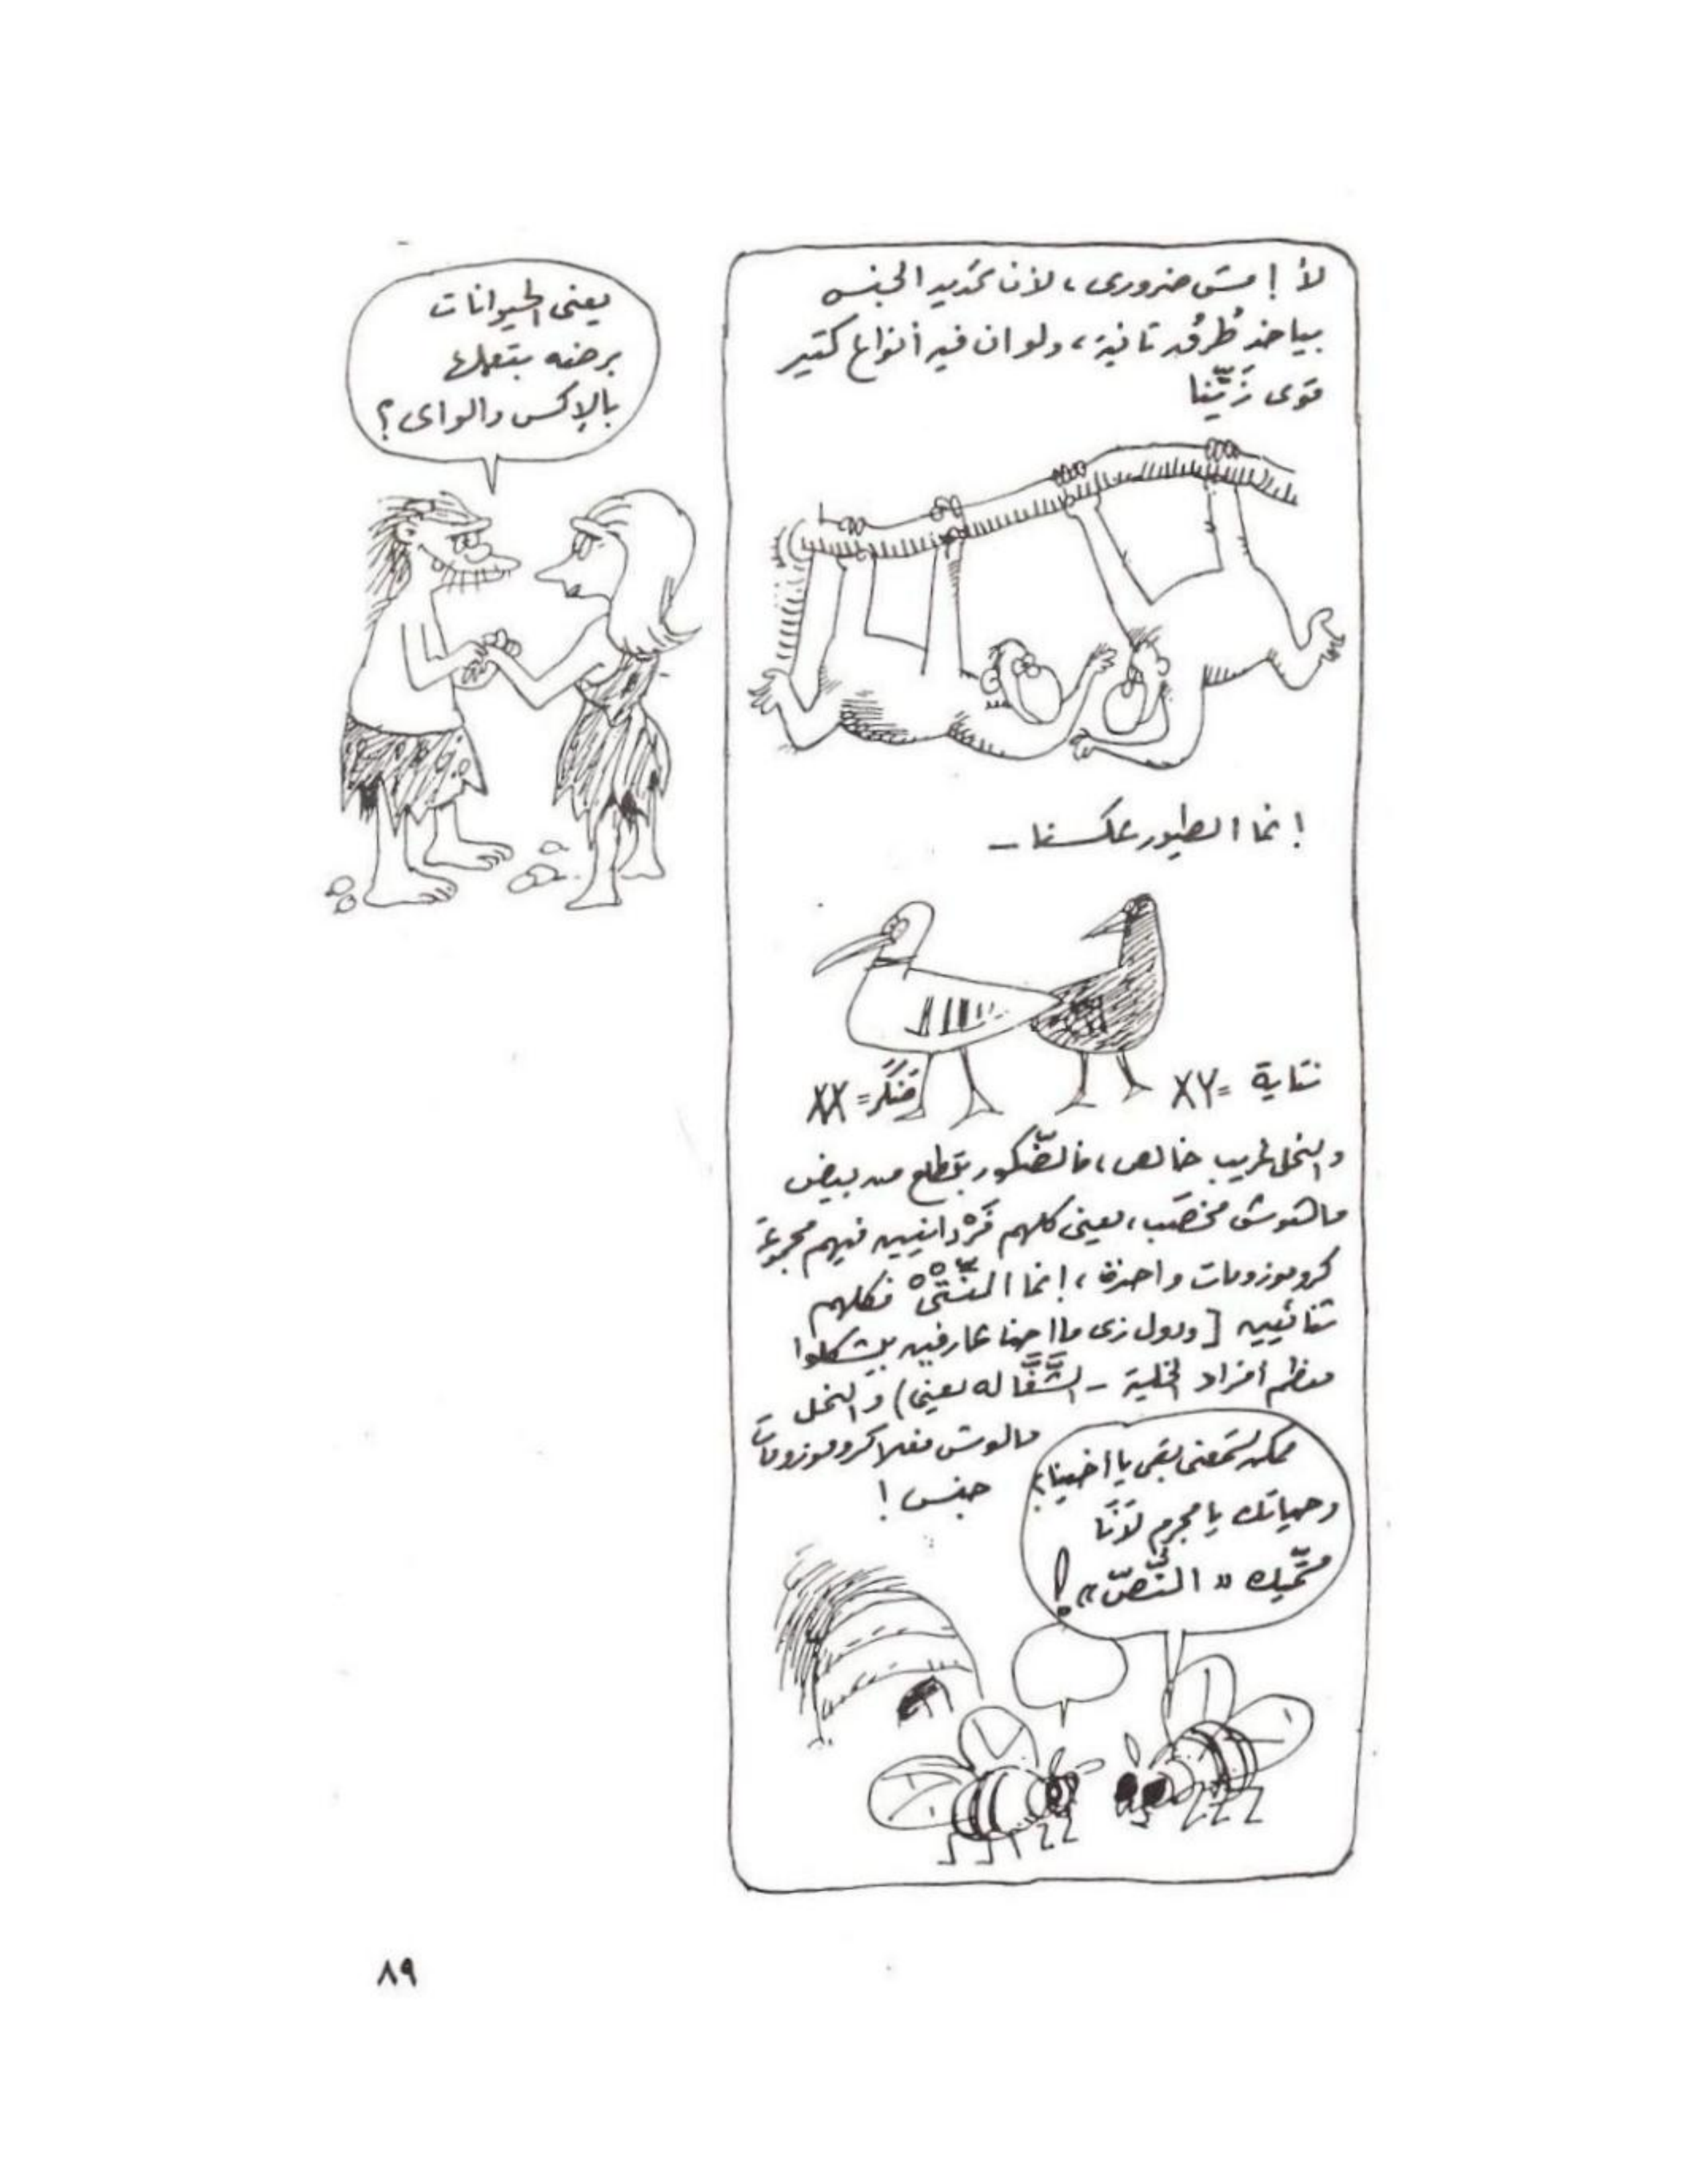 يعنى الحيوانات
برضه بتعملها
بالإكس والواى؟
لأ! مش ضرورى، لأن تحديد الجنس
بياخد طُرُق تانية، ولو ان فيه أنواع كتير
قوى زَيِّنا
إنما الطيور عكسنا -
نتاية = XY
دَكَر = XX
والنحل غريب خالص، فالدكور بتطلع من بيض
ماهوش مخصَّب، يعنى كلهم فَرْدانيين فيهم مجموعة
كروموزومات واحدة، إنما النتى فكلهم
تنائيين [ودول زى ما احنا عارفين بيشكلوا
معظم أفراد الخلية - الشَّغَّاله يعنى) والنحل
مالوش فعلا كروموزومات
جنس!
ممكن تسمعنى بقى يا اخينا؟
وحياتك يا مجرم لانا
مسميك "النُّصّ"!
٨٩